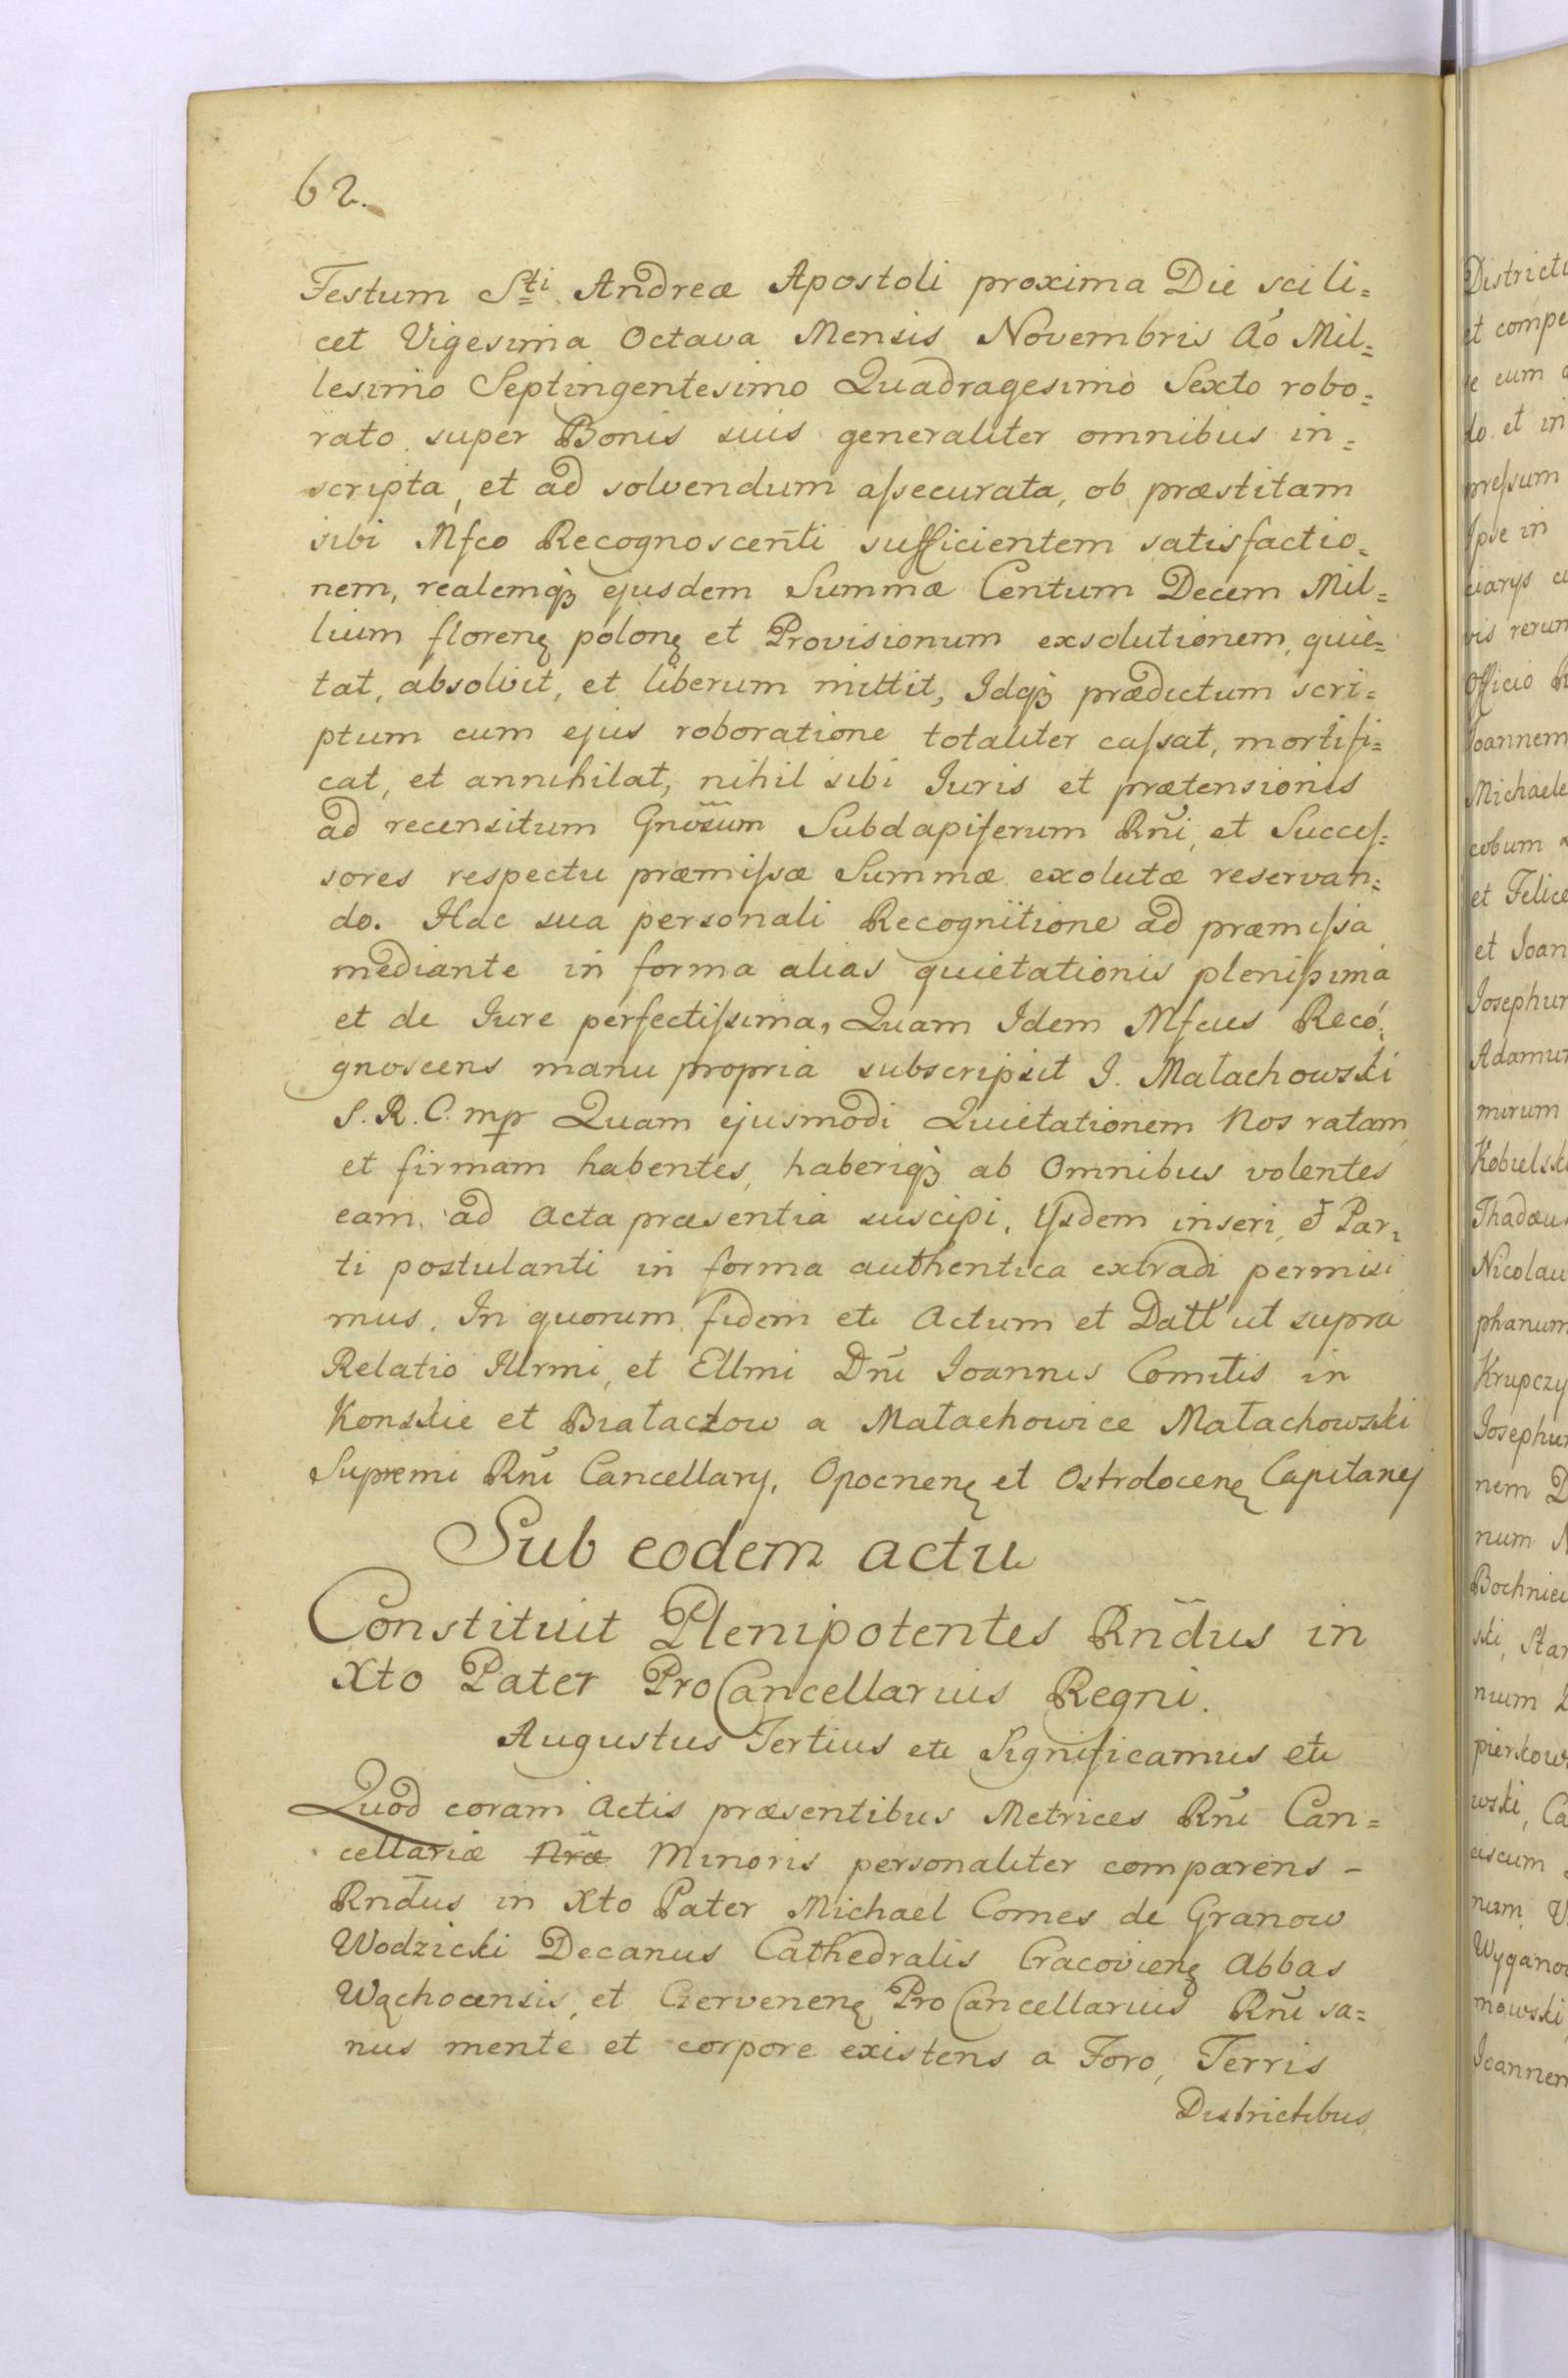 62.
Festum Sti Andreæ Apostoli proxima Die scili=
cet Vigesima Octava Mensis Novembris Aó Mil=
lesimo Septingentesimo Quadragesimo Sexto robo=
rato super Bonis suis generaliter omnibus in=
scripta, et ad solvendum aſsecurata, ob præstitam
sibi Mfco Recognoscenti sufficientem satisfactio=
nem, realemqꝫ ejusdem Summæ Centum Decem Mil=
lium florenꝫ polonꝫ et Provisionum exsolutionem, quie=
tat, absolvit, et liberum mittit, Idqꝫ prædictum scri=
ptum cum ejus roboratione totaliter caſsat, mortifi=
cat, et annihilat, nihil sibi Iuris et prætensionis
ad recensitum Gnõsum Subdapiferum Rñi, et Succeſ=
sores respectu præmiſsæ Summæ exolutæ reservan=
do. Hac sua personali Recognitione ad præmiſsa
mediante in forma alias quietationis pleniſsima
et de Iure perfectiſsima, Quam Idem Mfcus Reco=
gnoscens manu propria subscripsit J. Małachowski
S. R. C. mp Quam ejusmodi Quietationem Nos ratam
et firmam habentes, haberiqꝫ ab Omnibus volentes
eam, ad Acta præsentia suscipi, Ysdem inseri, et Par=
ti postulanti in forma authentica extradi permisi
mus. In quorum fidem etc Actum et Datt ut supra
Relatio Illrmi, et Ellmi Dñi Ioannis Comitis in
Konskie et Białaczow a Małachowice Małachowski
Supremi Rñi Cancellary, Opocnenꝫ et Ostrolocenꝫ Capitaney
Sub eodem actu
Constituit Plenipotentes Rñdus in
Xto Pater ProCancellarius Regni.
Augustus Tertius etc Significamus etc
Quod coram Actis præsentibus Metrices Rñi Can=
cellariæ Nræ Minoris personaliter comparens -
Rñdus in Xto Pater Michael Comes de Granow
Wodzicki Decanus Cathedralis Cracovienꝫ Abbas
Wąchocensis, et Czervenenꝫ ProCancellarius Rñi sa=
nus mente et corpore existens a Foro, Terris
Districtibus
Districti
et compe
se cum
do et in
preſsum
Ipse in
ciarys
vis rerum
Officio
Ioannem
Michaele
cobum
et Felice
et Ioan
Josephum
Adamum
mirum
Kobielski
Thadæu
Nicolau
phanum
Krupczy
Josephu
nem D
num
Bochnie
ski, Sta
nium
pierkow
wski, Ca
ciscum
num
Wygano
mowski
Joannem